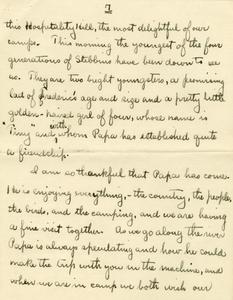 7
this Hospitality Hill, the most delightful of our
camps. This morning the youngest of the four
generations of Stebbins have been down to see
us. They are two bright youngsters, a promising
lad of Frederic's age and size and a pretty little
golden-haired girl of four, whose name is
Tiny and with whom Papa has established quite
a friendship.
I am so thankful that Papa has come.
He is enjoying everything - the country, the people,
the birds, and the camping, and we are having
a fine visit together. As we go along the river
Papa is always speculating and how he could
make the trip with you in the machine, and
when we are in camp we both wish our